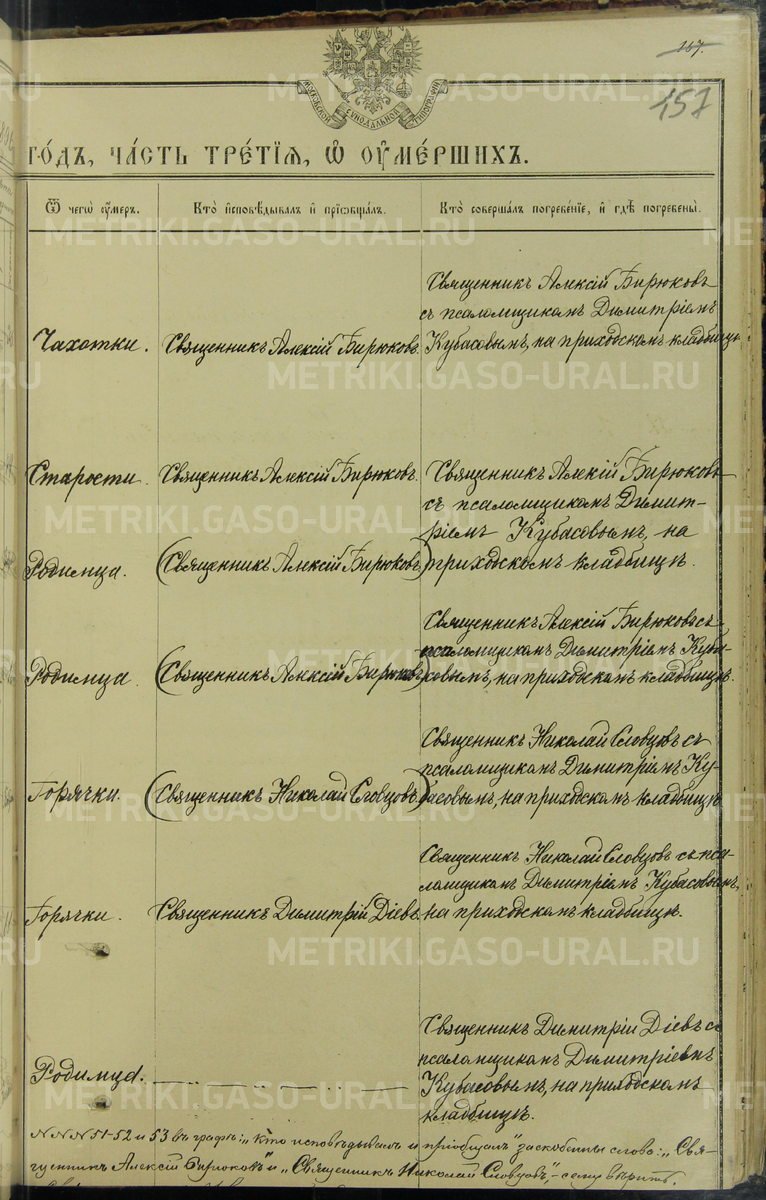 167.
157
МОСКОВСКОЙ СѴНОДАЛЬНОЙ ТИПОГРАФІИ
METRIKI.GASO-URAL.RU
ГО́ДЪ, ЧА́СТЬ ТРЕ́ТІѦ, Ѽ ОУМЕ́РШИХЪ.
Ѿ чегѡ̀ оу́меръ.
Кто̀ и҆сповѣ́дывалъ и҆ прїѻбща́лъ.
Кто̀ соверша́лъ погребе́нїе, и҆ гдѣ̀ погребены̀.
Чахотки.
Священникъ Алексій Бирюковъ.
Священникъ Алексій Бирюковъ
съ псаломщикомъ Димитріемъ
Кубасовымъ, на приходскомъ кладбищѣ.
Старости.
Священникъ Алексій Бирюковъ.
Священникъ Алексій Бирюковъ
съ псаломщикомъ Димит-
ріемъ Кубасовымъ, на
приходскомъ кладбищѣ.
Родимца.
(Священникъ Алексій Бирюковъ)
Родимца.
(Священникъ Алексій Бирюковъ)
Священникъ Алексій Бирюковъ съ
псаломщикомъ Димитріемъ Куба-
совымъ, на приходскомъ кладбищѣ.
Горячки.
(Священникъ Николай Словцовъ)
Священникъ Николай Словцовъ съ
псаломщикомъ Димитріемъ Ку-
басовымъ, на приходскомъ кладбищѣ
Горячки.
Священникъ Димитрій Діевъ
Священникъ Николай Словцовъ съ пса-
ломщикомъ Димитріемъ Кубасовымъ,
на приходскомъ кладбищѣ.
Родимца.
Священникъ Димитрій Діевъ съ
псаломщикомъ Димитріемъ
Кубасовымъ, на приходскомъ
кладбищѣ.
NNN 51-52 и 53 въ графѣ: „кто исповѣдывалъ и приобщалъ" заскоблены слова: „Свя-
щенникъ Алексій Бирюковъ" и „Священникъ Николай Словцовъ", - сему вѣрить.